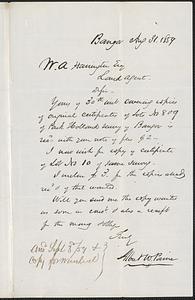 Bangor Aug 31. 1859
W. A. Harrington Esq
Land Agent.
Sir
Yours of 30th ult covering copies
of original certificates of lots No 8 & 9
of Park Holland survey of Bangor is
rec'd with your note of fees, $2—
I now wish for copy of certificate
of lot No 10 of same survey.
I enclose for the copies already
rec'd & that wanted.
Will you send me the copy wanted
as soon as & also a receipt
for the money
Truly
Albert W. Paine
Sept
copy